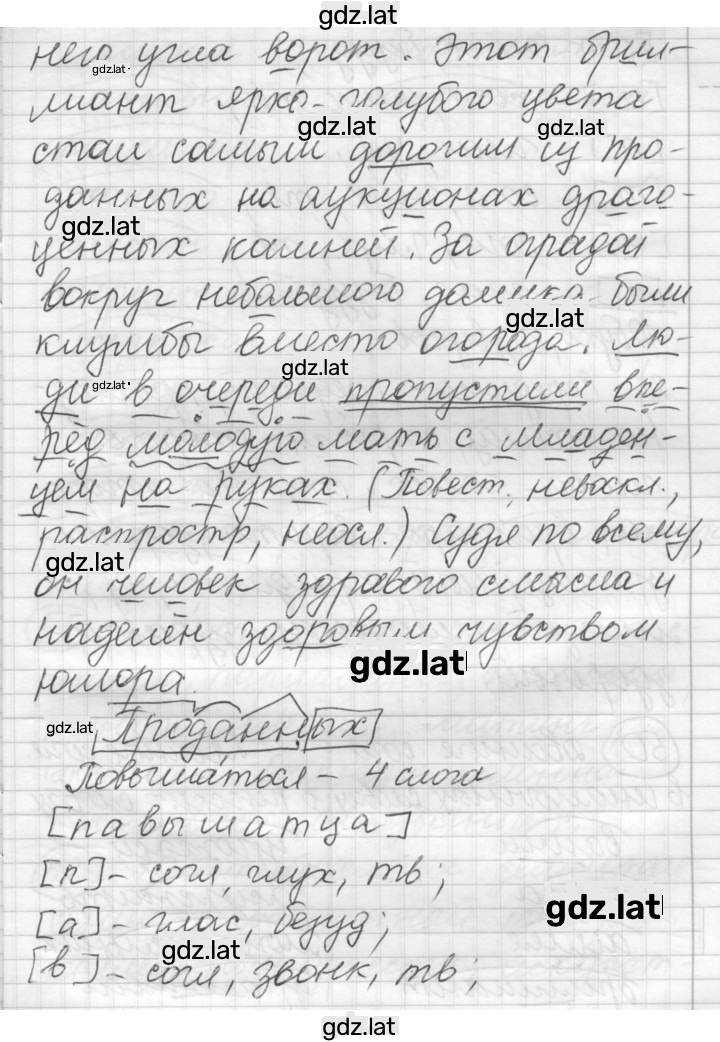 gdz.lat
него угла ворот. Этот брил-
gdz.lat
лиант ярко-голубого цвета
gdz.lat
gdz.lat
стал самым дорогим из про-
данных на аукционах драго-
gdz.lat
ценных камней. За оградой
вокруг небольшого домика были
gdz.lat
клумбы вместо огорода. Лю-
gdz.lat
gdz.lat
ди в очереди пропустили впе-
рёд молодую мать с младен-
цем на руках. (Повест., невоскл.,
распростр, неосл.) Судя по всему,
gdz.lat
он человек здравого смысла и
наделён здоровым чувством
gdz.lat
юмора.
gdz.lat
Проданных
Повышаться – 4 слога
[павышатца]
[п] – согл, глух, тв;
[а] – глас, безуд;
gdz.lat
gdz.lat
[в] – согл, звонк, тв;
gdz.lat